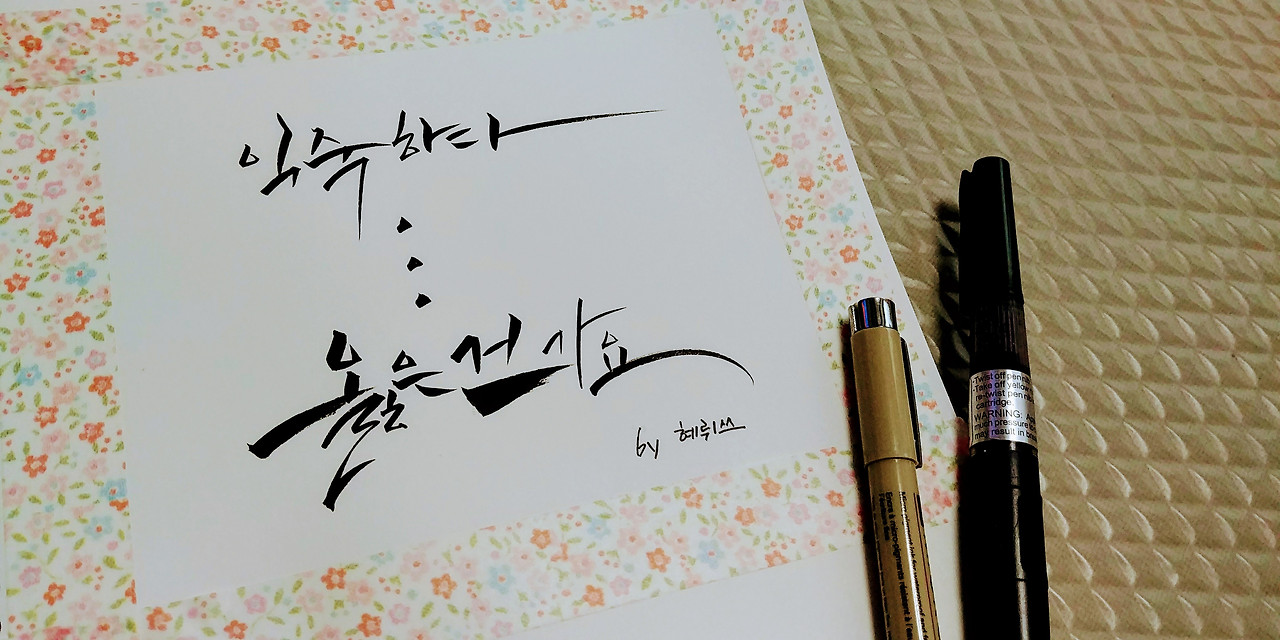 익숙하다
...
옳은건가요
by 혜뤼쓰
-Twist off pen
-Take off yellow
re-twist pen
cartridge.
WARNING:
much pressure
may result in